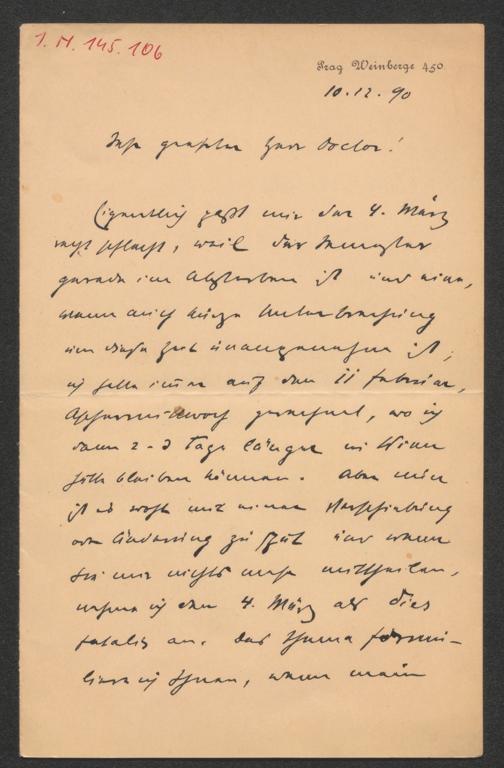 I. N. 145.106
Prag Weinberge 450
10.12.90
Sehr geehrter Herr Doctor!
Eigentlich paßt mir der 4. März
recht schlecht, weil das Semester
gerade im Absterben ist und eine,
wenn auch kurze Unterbrechung
um diese Zeit unangenehm ist;
ich hätte immer auf den 11 Februar,
gerechnet, wo ich
dann 2-3 Tage länger in Wien
hätte bleiben können. Aber nun
ist es wohl mit einer Verschiebung
oder Änderung zu spät und wenn
Sie mir nichts mehr mittheilen,
nehme ich den 4. März als dies
fatalis an. Das Thema formu-
liere ich Ihnen, wenn mein